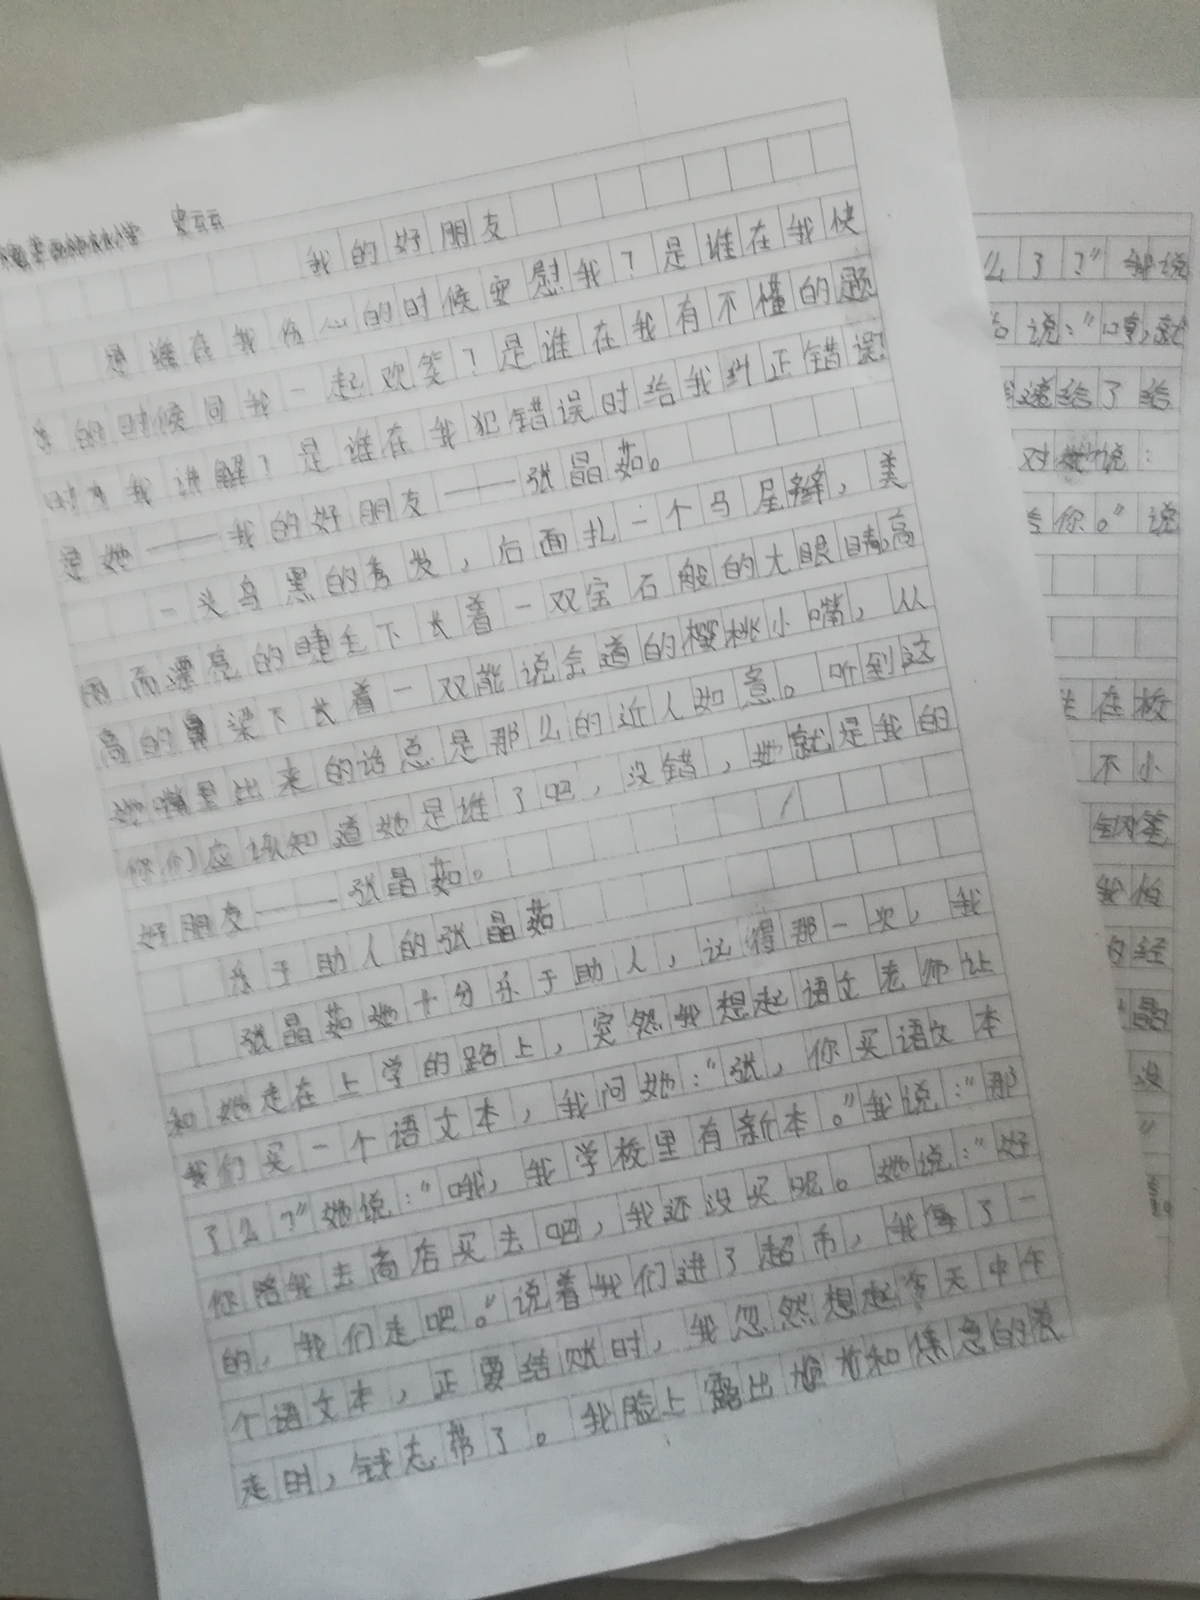 史云云
我的好朋友
是谁在我伤心的时候安慰我？是谁在我快
乐的时候同我一起欢笑？是谁在我有不懂的题
时为我讲解？是谁在我犯错误时给我纠正错误？
是她——我的好朋友——张晶茹。
一头乌黑的秀发，后面扎一个马尾辫，美
而漂亮的睫毛下长着一双宝石般的大眼睛，高
高的鼻梁下长着一双能说会道的樱桃小嘴，从
她嘴里出来的话总是那么的近人如意。听到这
你们应该知道她是谁了吧，没错，她就是我的
好朋友——张晶茹。
乐于助人的张晶茹
张晶茹她十分乐于助人，记得那一次，我
和她走在上学的路上，突然我想起语文老师让
我们买一个语文本，我问她：“张，你买语文本
了么？”她说：“哦，我学校里有新本。”我说：“那
你陪我去商店买去吧，我还没买呢。她说：“好
的，我们走吧。”说着我们进了超市，我拿了一
个语文本，正要结账时，我忽然想起今天中午
走时，钱忘带了。我脸上露出尴尬和焦急的表
么了？”我说
说：“噢，就
递给了给
对她说：
给你。”说
在校
不小
钢笔
我怕
的经
“晶
没
”